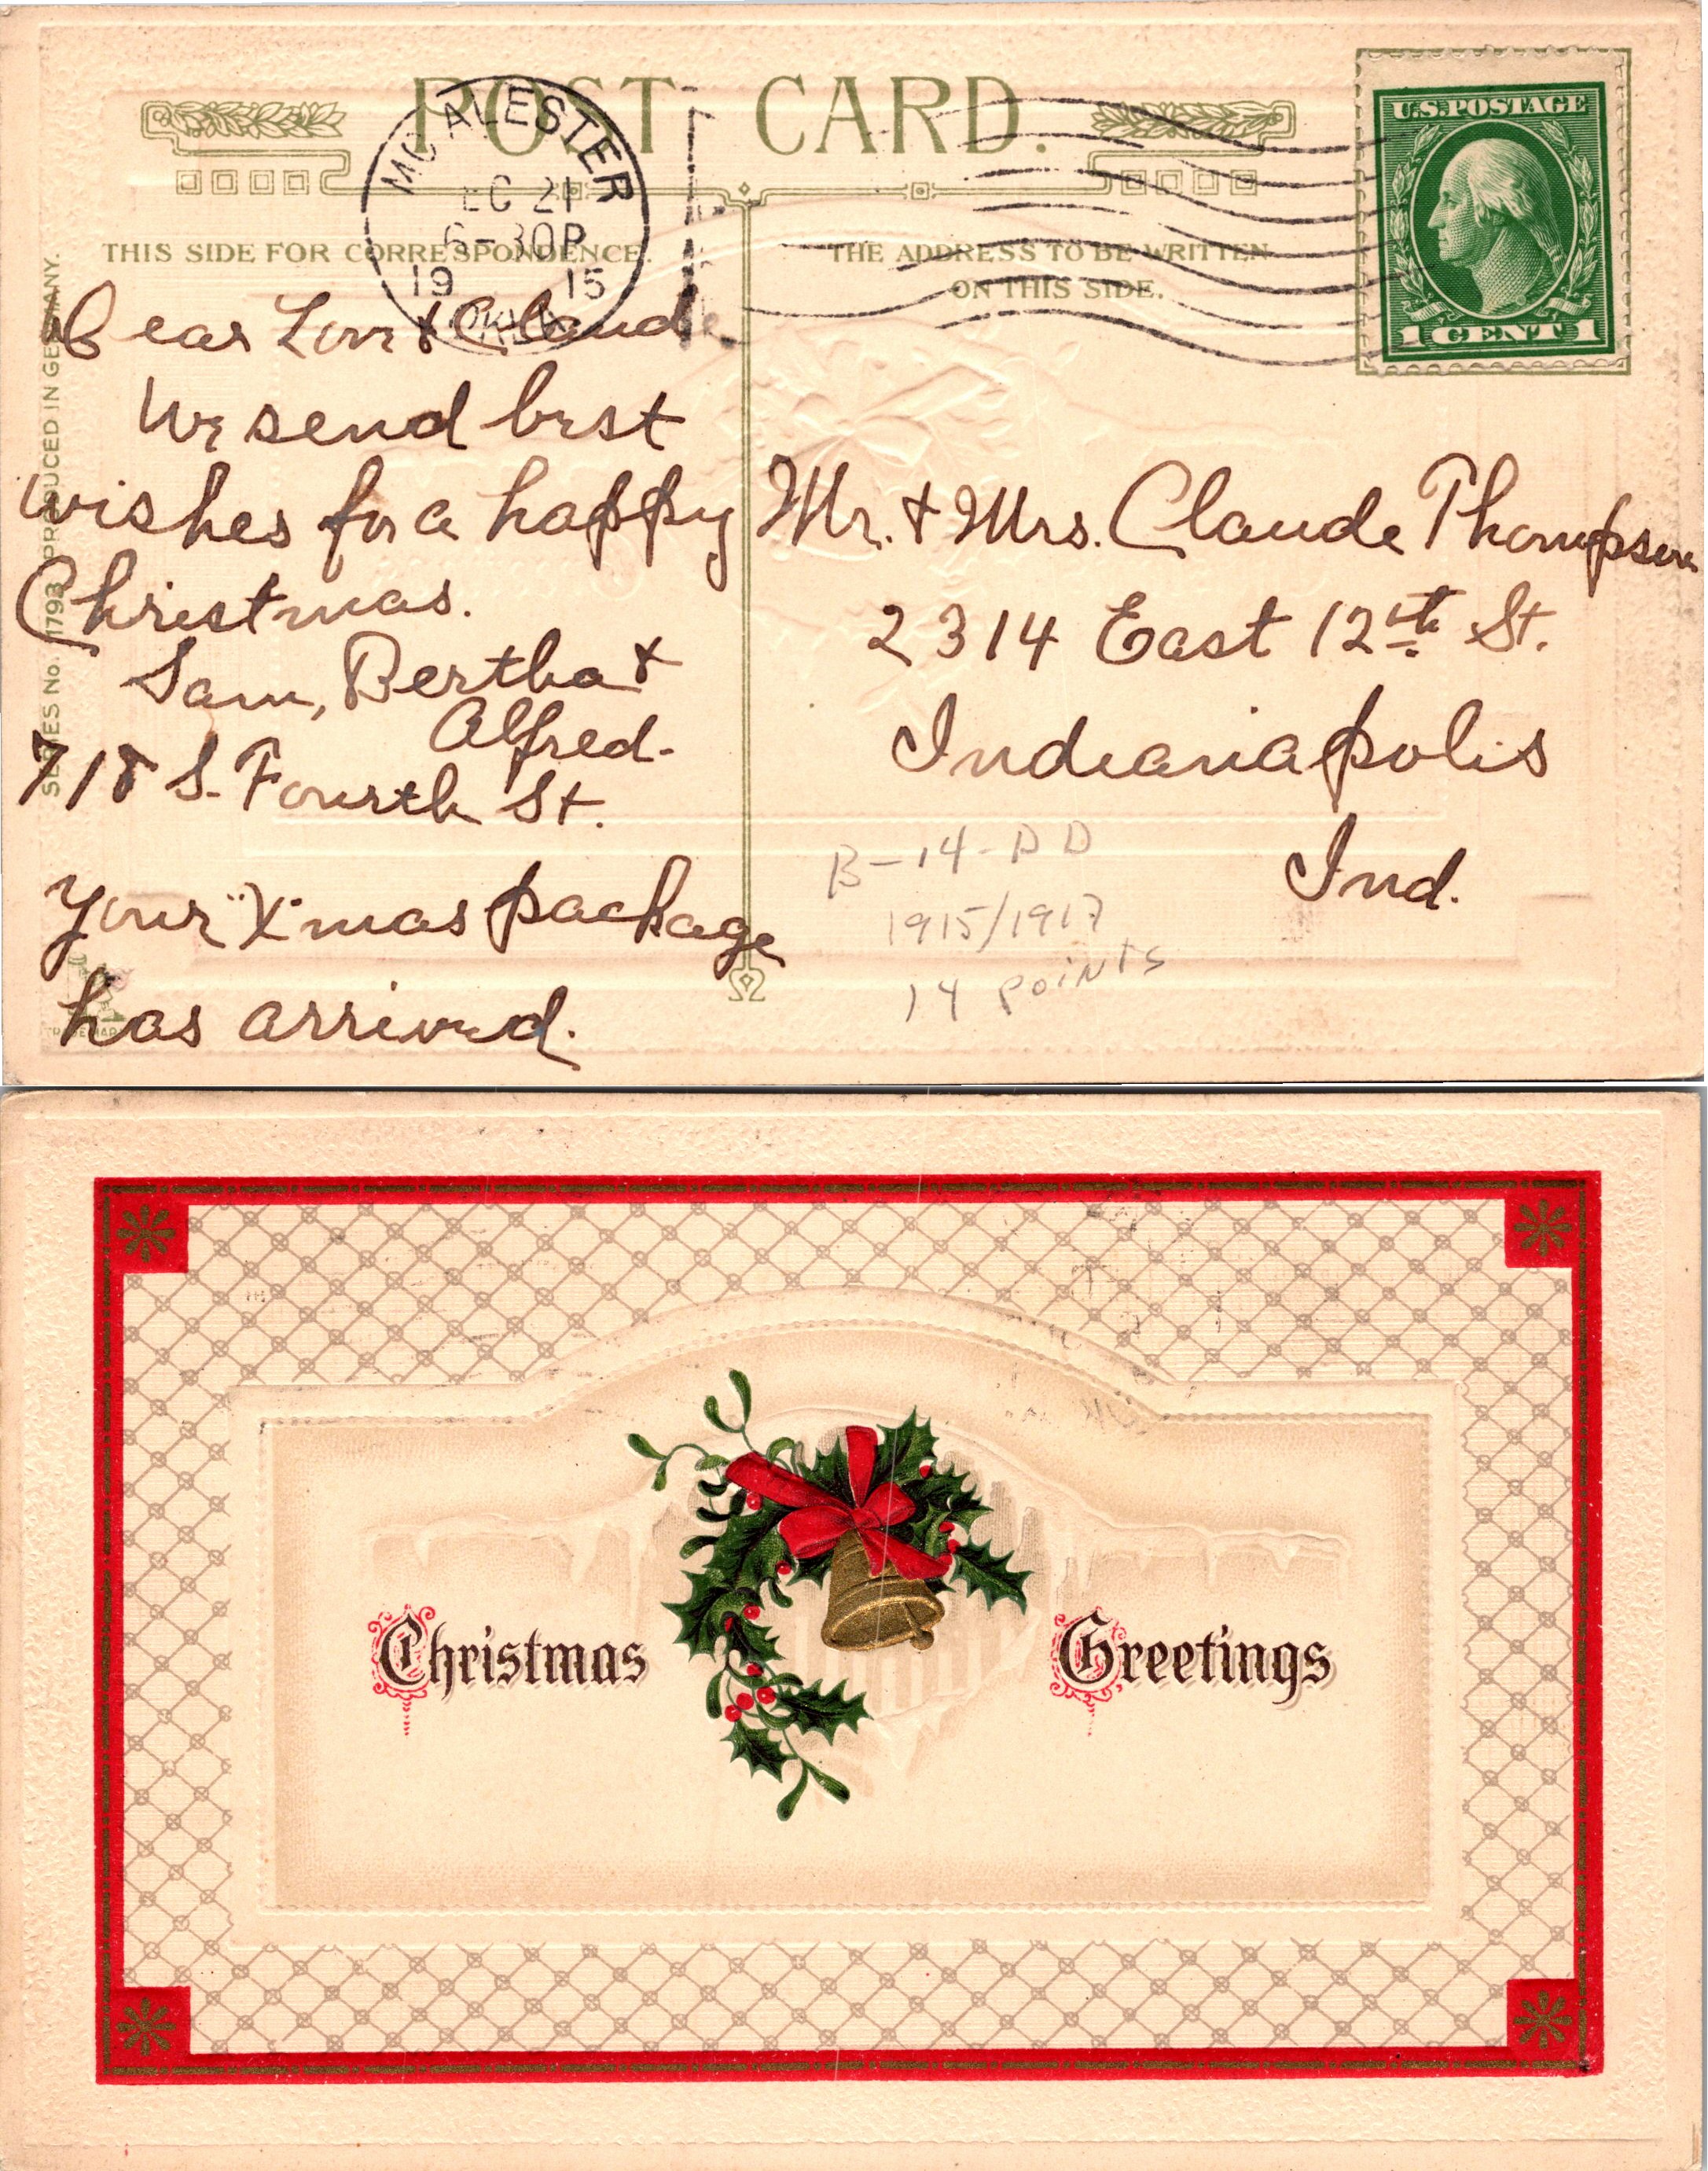 POST CARD.
MC ALESTER
EC 21
6-30P
19 15
OKLA
U.S. POSTAGE
1 CENT 1
THIS SIDE FOR CORRESPONDENCE.
THE ADDRESS TO BE WRITTEN
ON THIS SIDE.
SERIES No. 1793 PRODUCED IN GERMANY.
Dear & Claude
We send best
wishes for a happy
Christmas.
Sam, Bertha &
Alfred.
718 S. Fourth St.
Your "X"mas package
has arrived.
Mr. & Mrs. Claude Thompson
2314 East 12th St.
Indianapolis
Ind.
B-14-DD
1915/1917
14 POINTS
Christmas Greetings